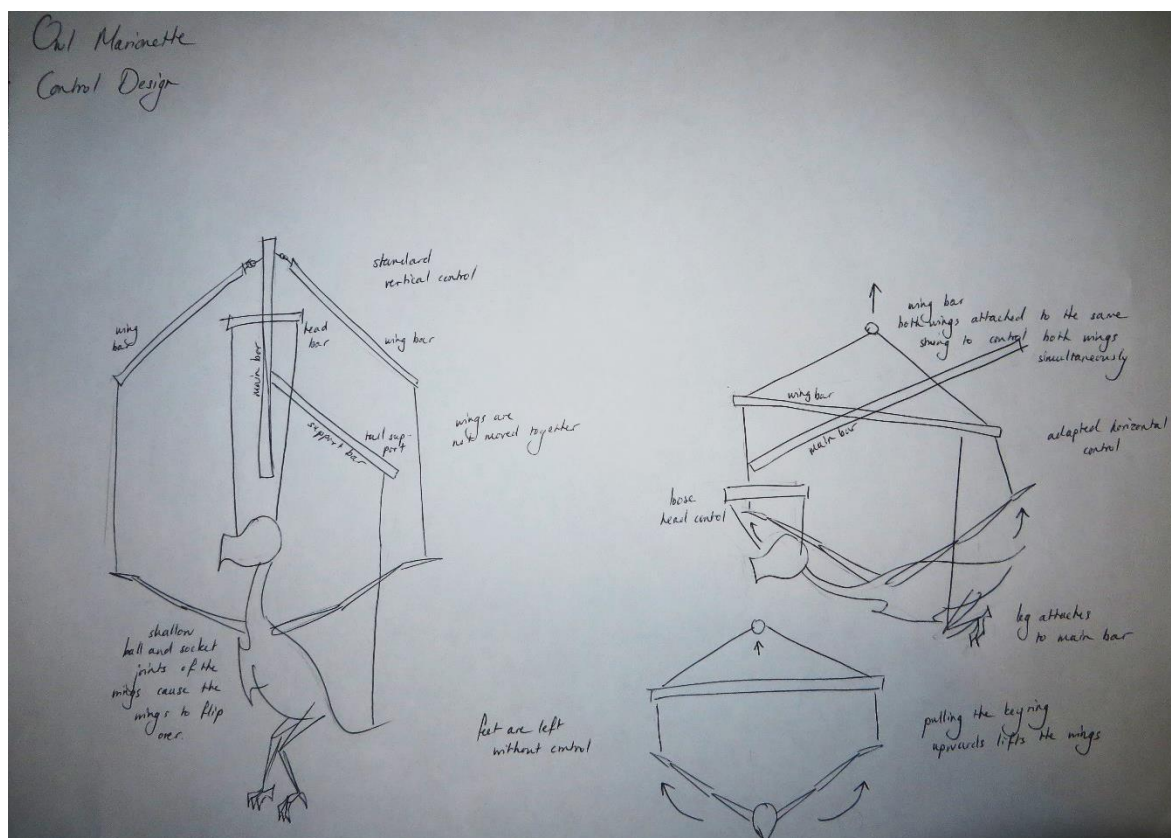 Owl Marionette
Control Design
standard
vertical control
wing
bar
head
bar
main bar
wing bar
support bar
tail sup-
port
wings are
not moved together
shallow
ball and socket
joints of the
wings cause the
wings to flip
over.
feet are left
without control
wing bar
both wings attached to the same
string to control both wings
simultaneously
wing bar
main bar
adapted horizontal
control
loose
head control
leg attaches
to main bar
pulling the keyring
upwards lifts the wings